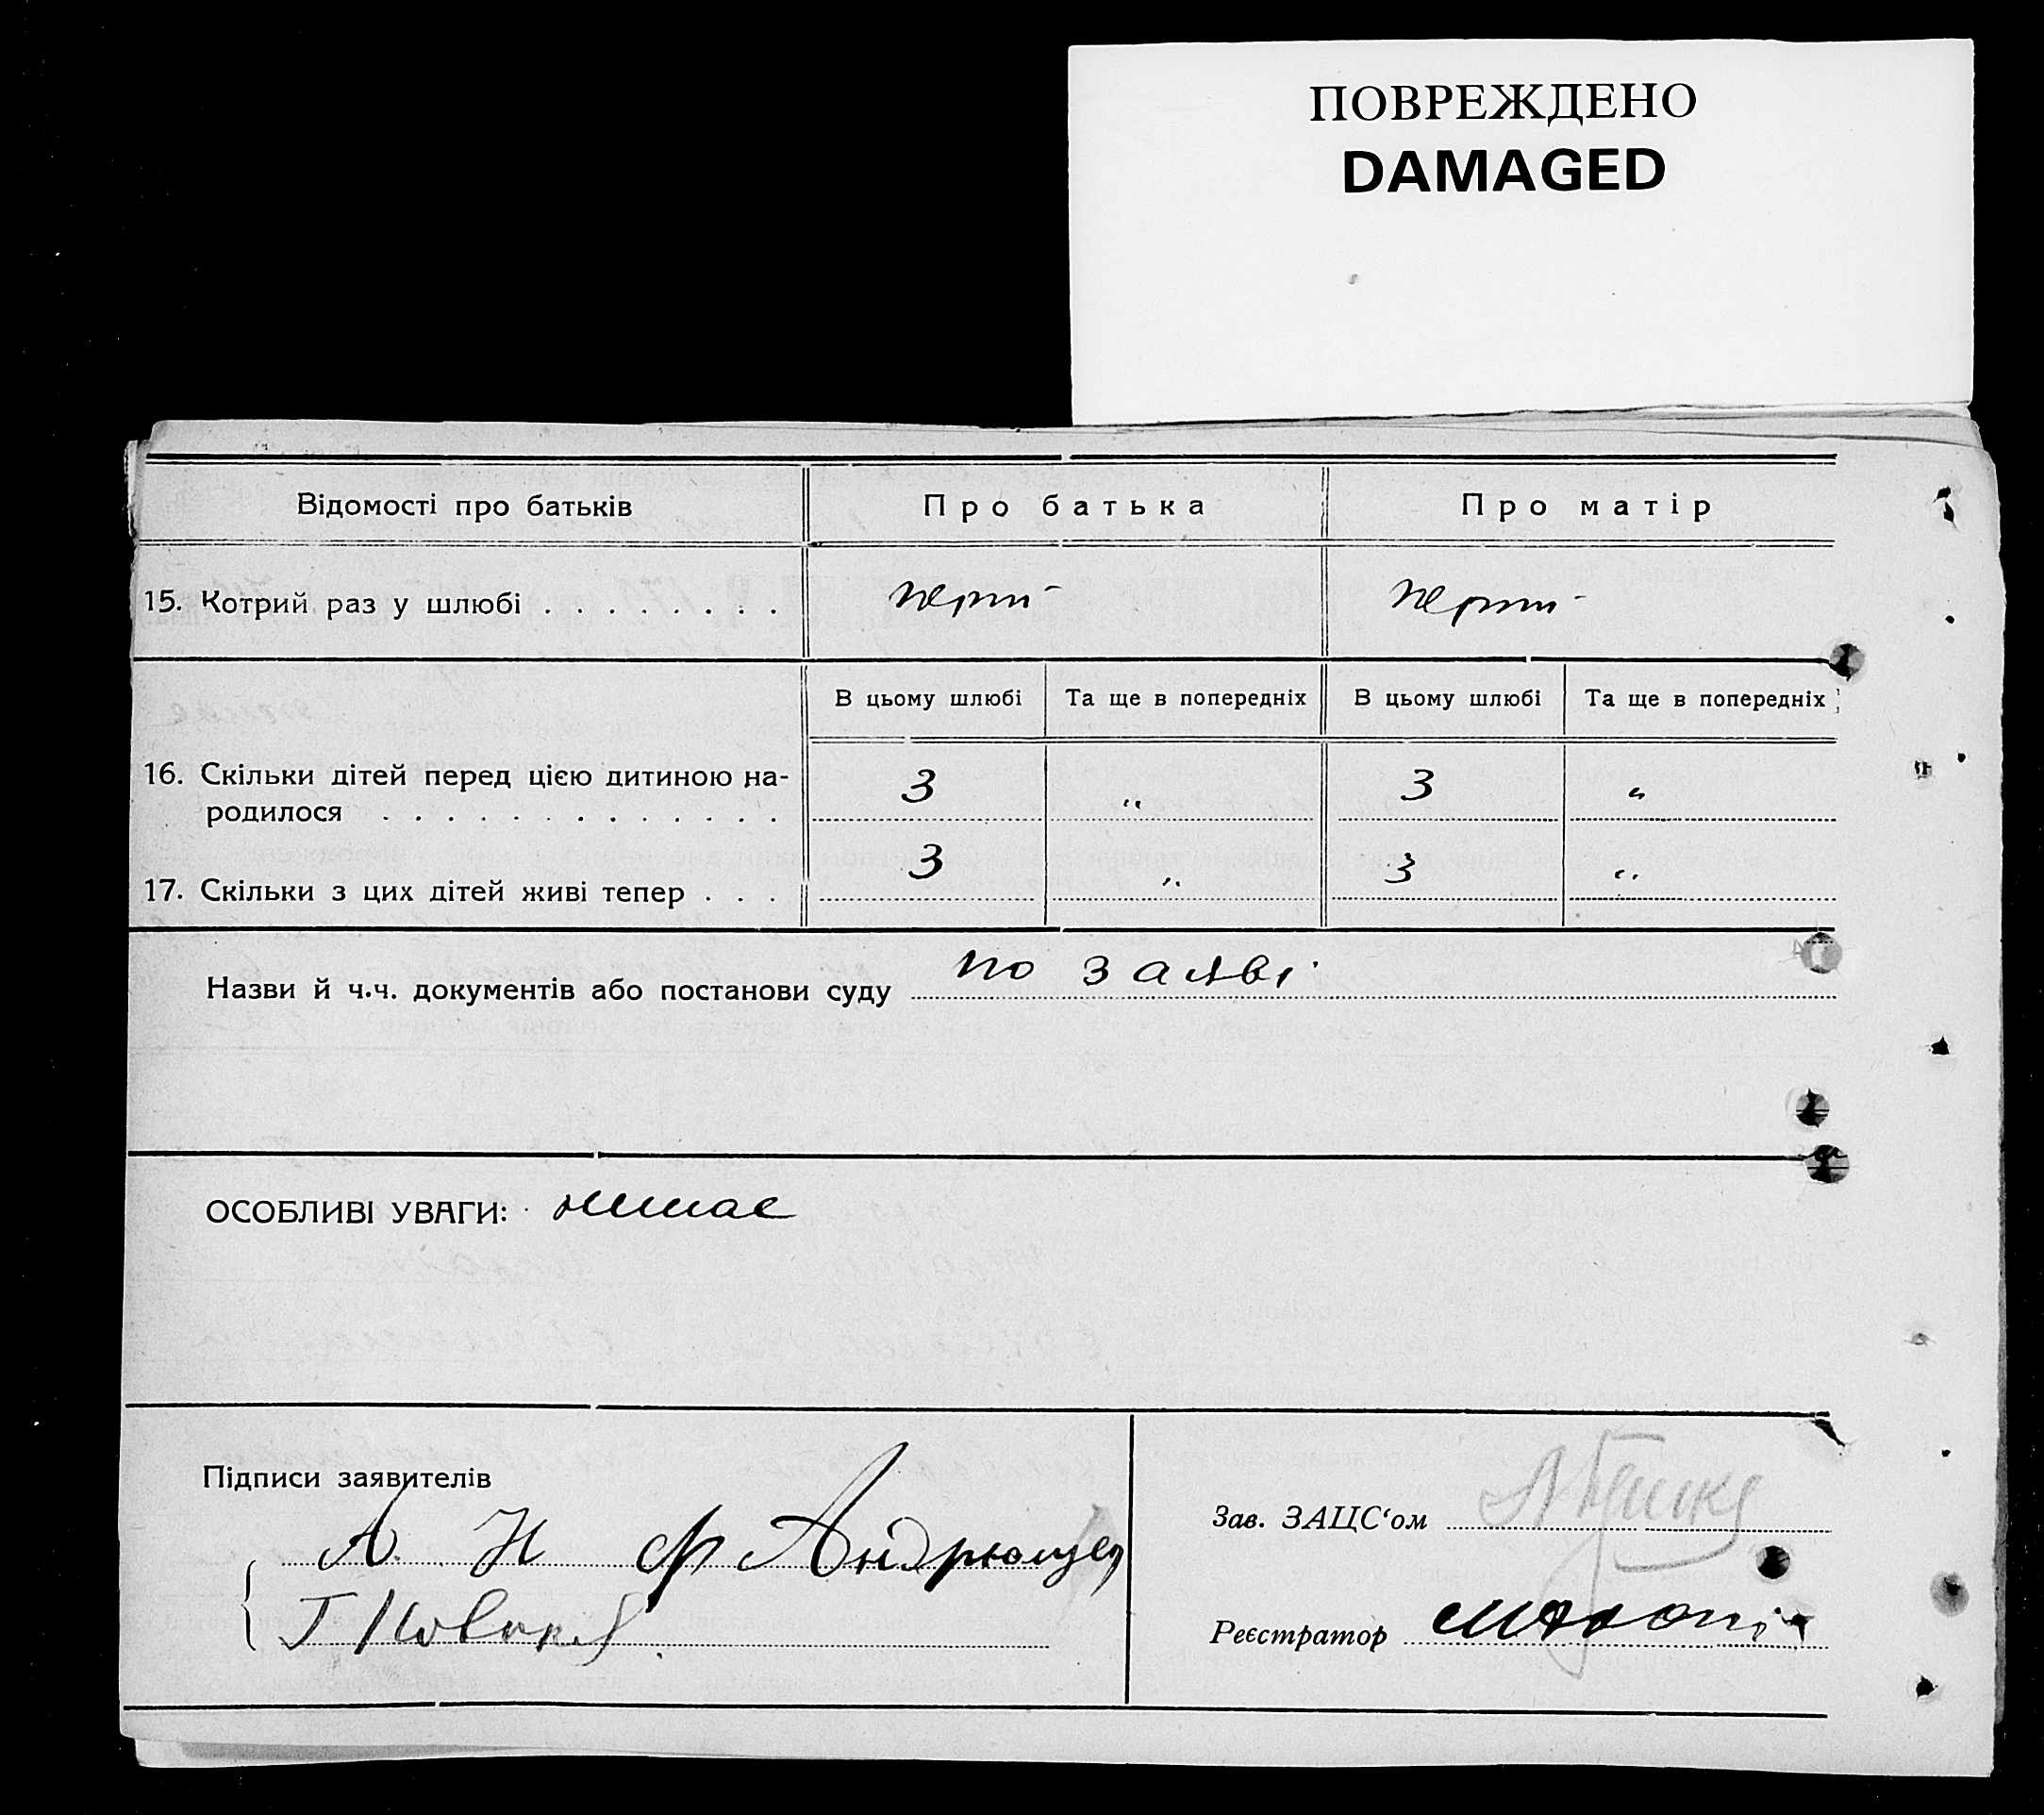 ПОВРЕЖДЕНО
DAMAGED
Відомості про батьків Про батька Про матір
15. Котрий раз у шлюбі . . . . . . . . перш перш
В цьому шлюбі Та ще в попередніх В цьому шлюбі Та ще в попередніх
16. Скільки дітей перед цією дитиною на-
родилося . . . . . . . . . . . . . 3 „ 3 „
17. Скільки з цих дітей живі тепер . . . 3 „ 3 „
Назви й ч.ч. документів або постанови суду по заяві
ОСОБЛИВІ УВАГИ: немає
Підписи заявителів
А. Н Ф Андрющен
Зав. ЗАЦС‘ом
Г
Реєстратор